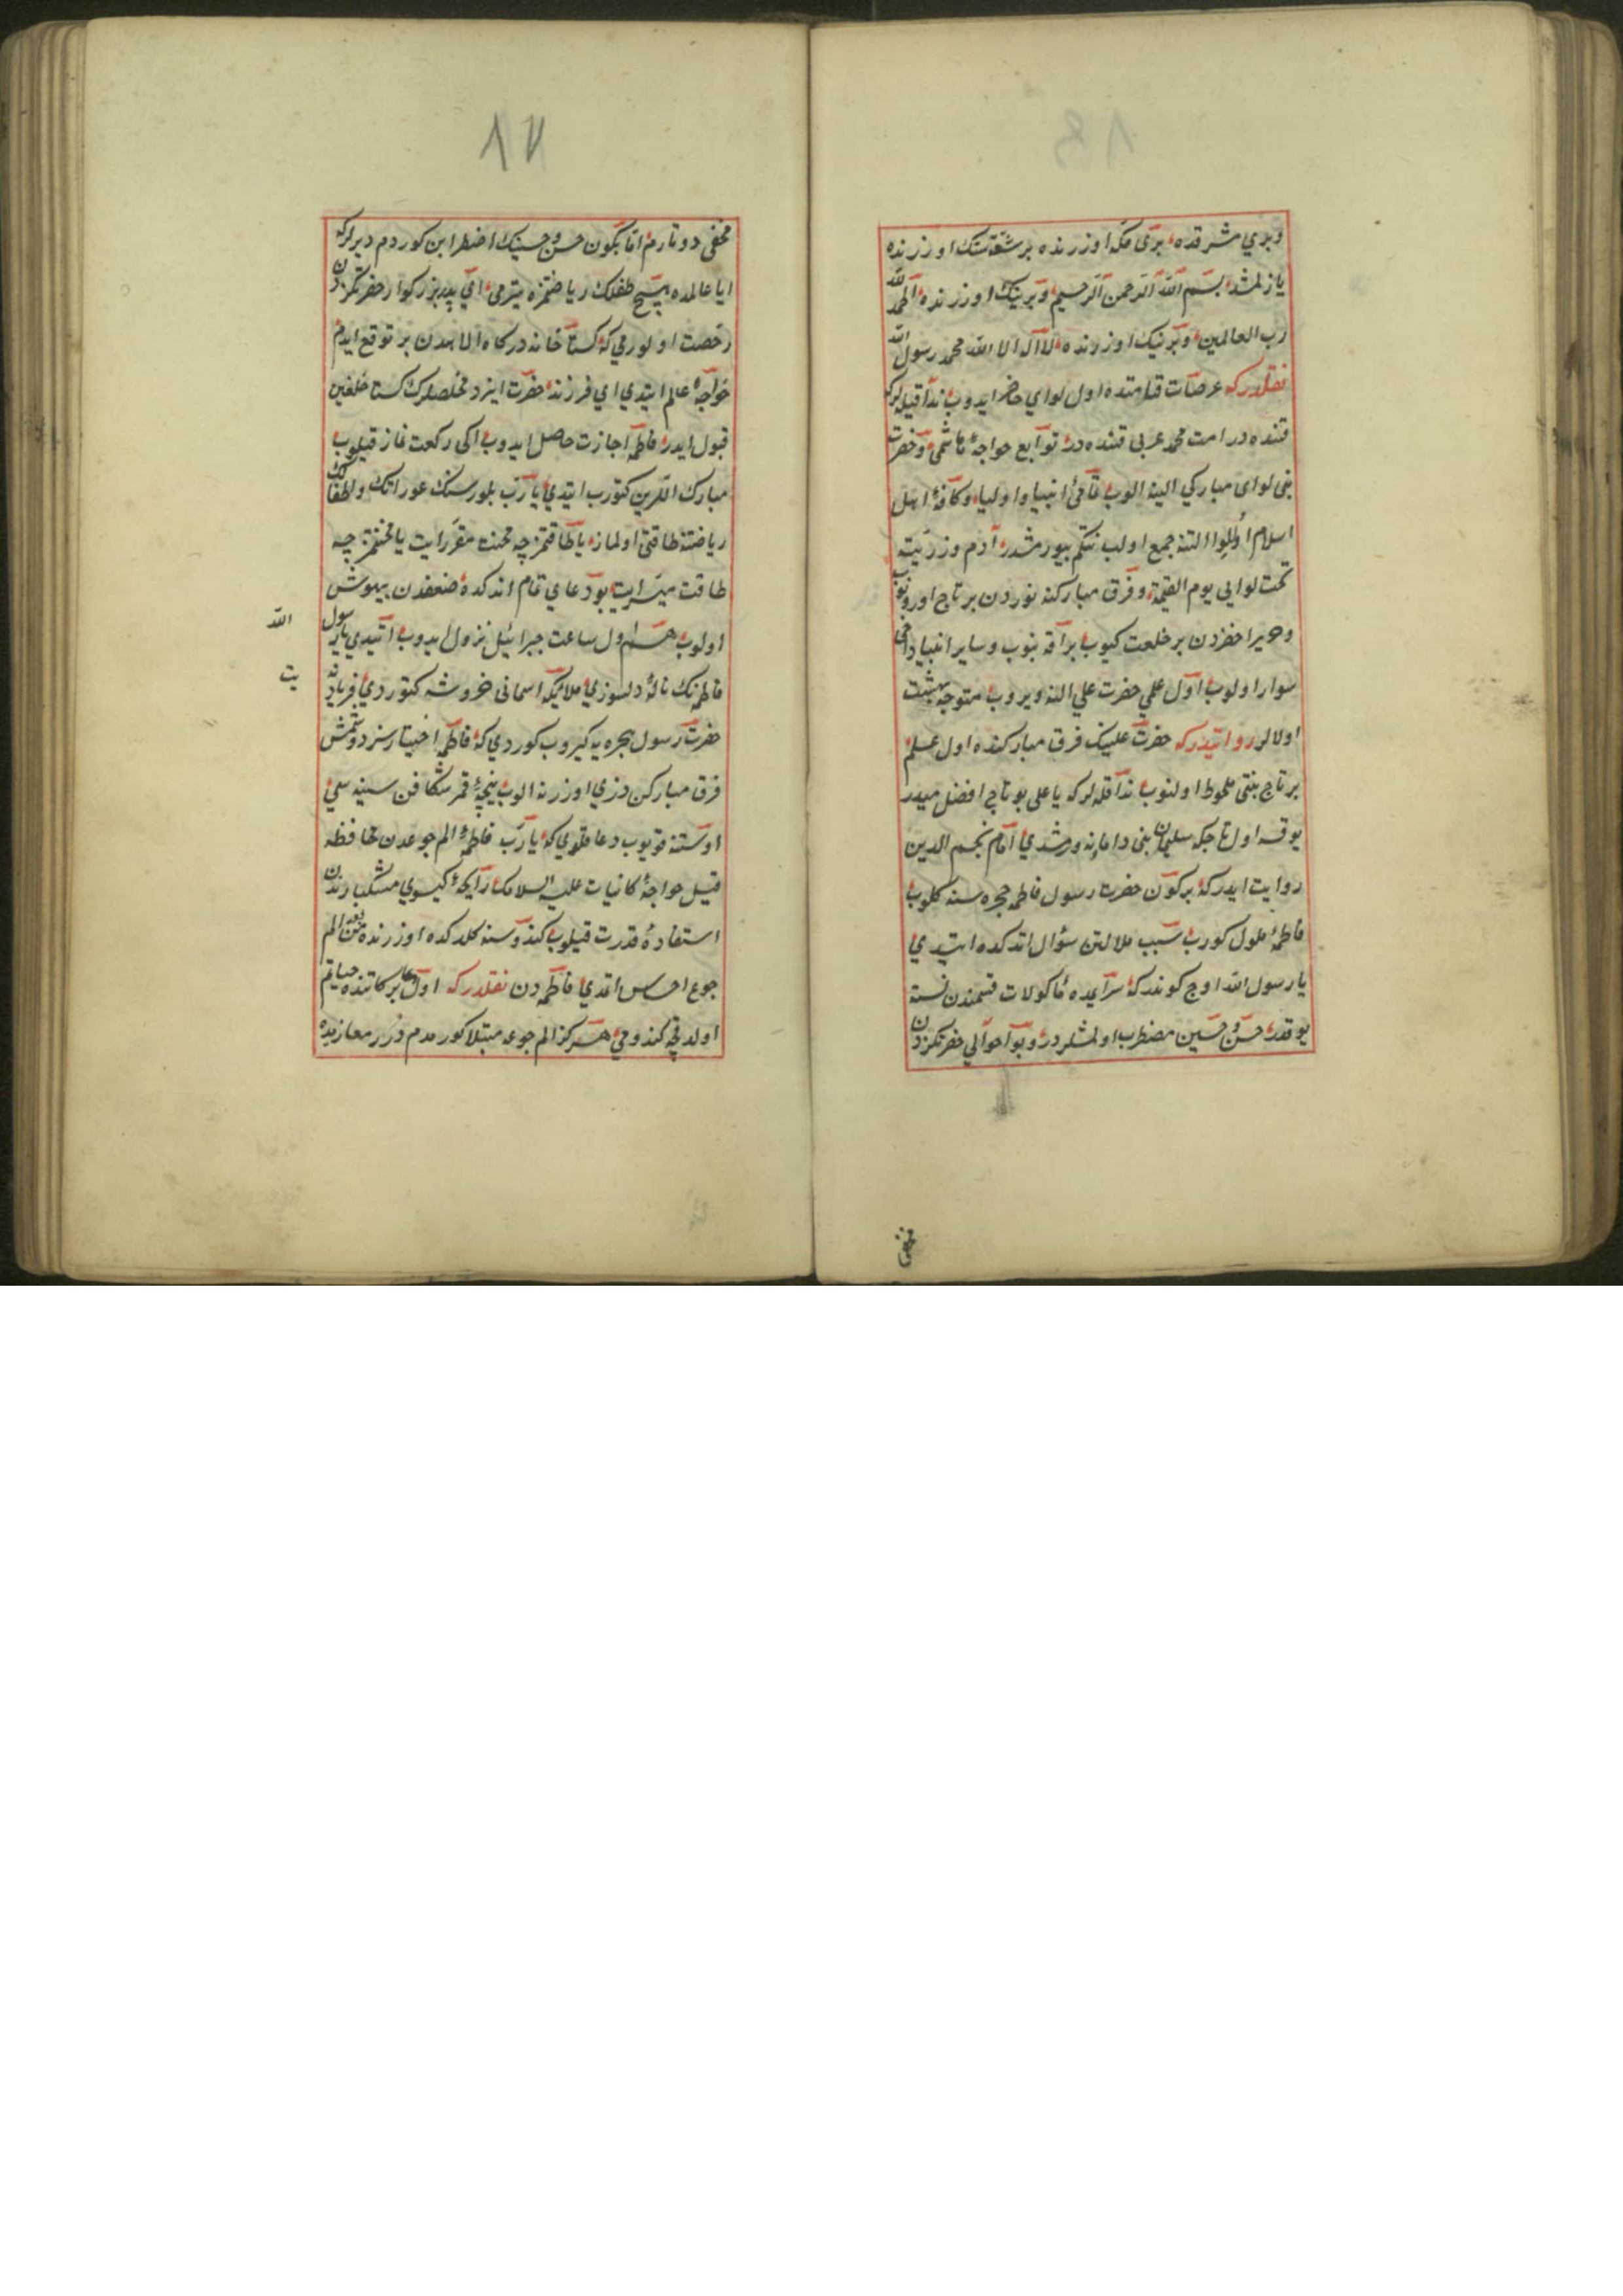 وبري مشرقده بری مکه اوزرنده بر شقه‌سنک اوزرنده
یازلمشدر بسم الله الرحمن الرحیم وبرینک اوزرنده الحمد لله
رب العالمین وبرینک اوزرنده لا اله الا الله محمد رسول الله
نقلدرکه عرصات قیامتده اول لوای حاضر ایدوب ندا قیله‌لر که
قنده در امت محمد عربی قنده در توابع خواجهٔ هاشمی وحضرت
نبی لوای مبارکی الینه الوب قامیٔ انبیا واولیا وکافهٔ اهل
اسلام اول لوا التنه جمع اولب نتکم بیورمشدر آدم وذریته
تحت لوایی یوم القیمة وفرق مبارکنه نوردن بر تاج اورونوب
وحریر اخضردن بر خلعت کیوب براقه بنوب وسایر انبیا دخی
سوار اولوب اول علمی حضرت علی النه ویروب متوجه بهشت
اولالر روایتدرکه حضرت علینک فرق مبارکنده اول علم
بر تاج بنتی ملحوظ اولنوب ندا قله‌لر که یا علی بو تاج افضل میدر
یوقسه اول تاج که سلیمان نبی دامادنه ویرشدی امام نجم الدین
روایت ایدر که برکون حضرت رسول فاطمه حجره‌سنه کلوب
فاطمهٔ ملول کورب سبب ملالتن سؤال اتدکده ایتدی
یا رسول الله اوچ کوندر که سرایمده مأکولات قسمندن نسنه
یوقدر حسن وحسین مضطرب اولمشلردر وبو احوالی حضرتکزدن
مخفی
۱۷
مخفی دوتارم اما بکون حسن وحسینک اضطرابن کوردم دیرلر که
ایا عالمده هیچ طفلک ریاضتمزه یترمی ای پدر بزرکوار حضرتکزدن
رخصت اولورمی که کستاخانه درکاه الاهدن بر توقع ایدم
خواجهٔ عالم ایتدی ای فرزند حضرت ایزد مخلصلرک کستاخلغین
قبول ایدر فاطمه اجازت حاصل ایدوب اکی رکعت نماز قیلوب
مبارک اللرین کتورب ایتدی یا رب بلورسنک عوراتک واطفالک
ریاضته طاقتی اولماز یا طاقتمزجه محنت مقرر ایت یا محنتمزجه
طاقت میسر ایت بو دعای تمام اتدکده ضعفدن بیهوش
اولوب همان اول ساعت جبرائیل نزول ایدوب ایتدی یا رسول الله
فاطمه‌نک نالهٔ دلسوزی ملائکه اسمانی خروشه کتوردی فریادینه یت
حضرت رسول حجره‌یه کیروب کوردی که فاطمه اختیارسز دوشمش
فرق مبارکن دزی اوزرنه الوب پنجهٔ قمر شکافن سینه‌سی
اوستنه قویوب دعا قلدی که یا رب فاطمهٔ الم جوعدن محافظه
قیل خواجهٔ کائنات علیه السلامک رایحهٔ کیسوی مشکبارندن
استفادهٔ قدرت قیلوب کندوسنه کلدکده اوزرنده الم
جوع احساس اتمدی فاطمه‌دن نقلدر که اول دعا برکاتنده حیاتم
اولدقچه کندومی هرکز الم جوعه مبتلا کورمدم